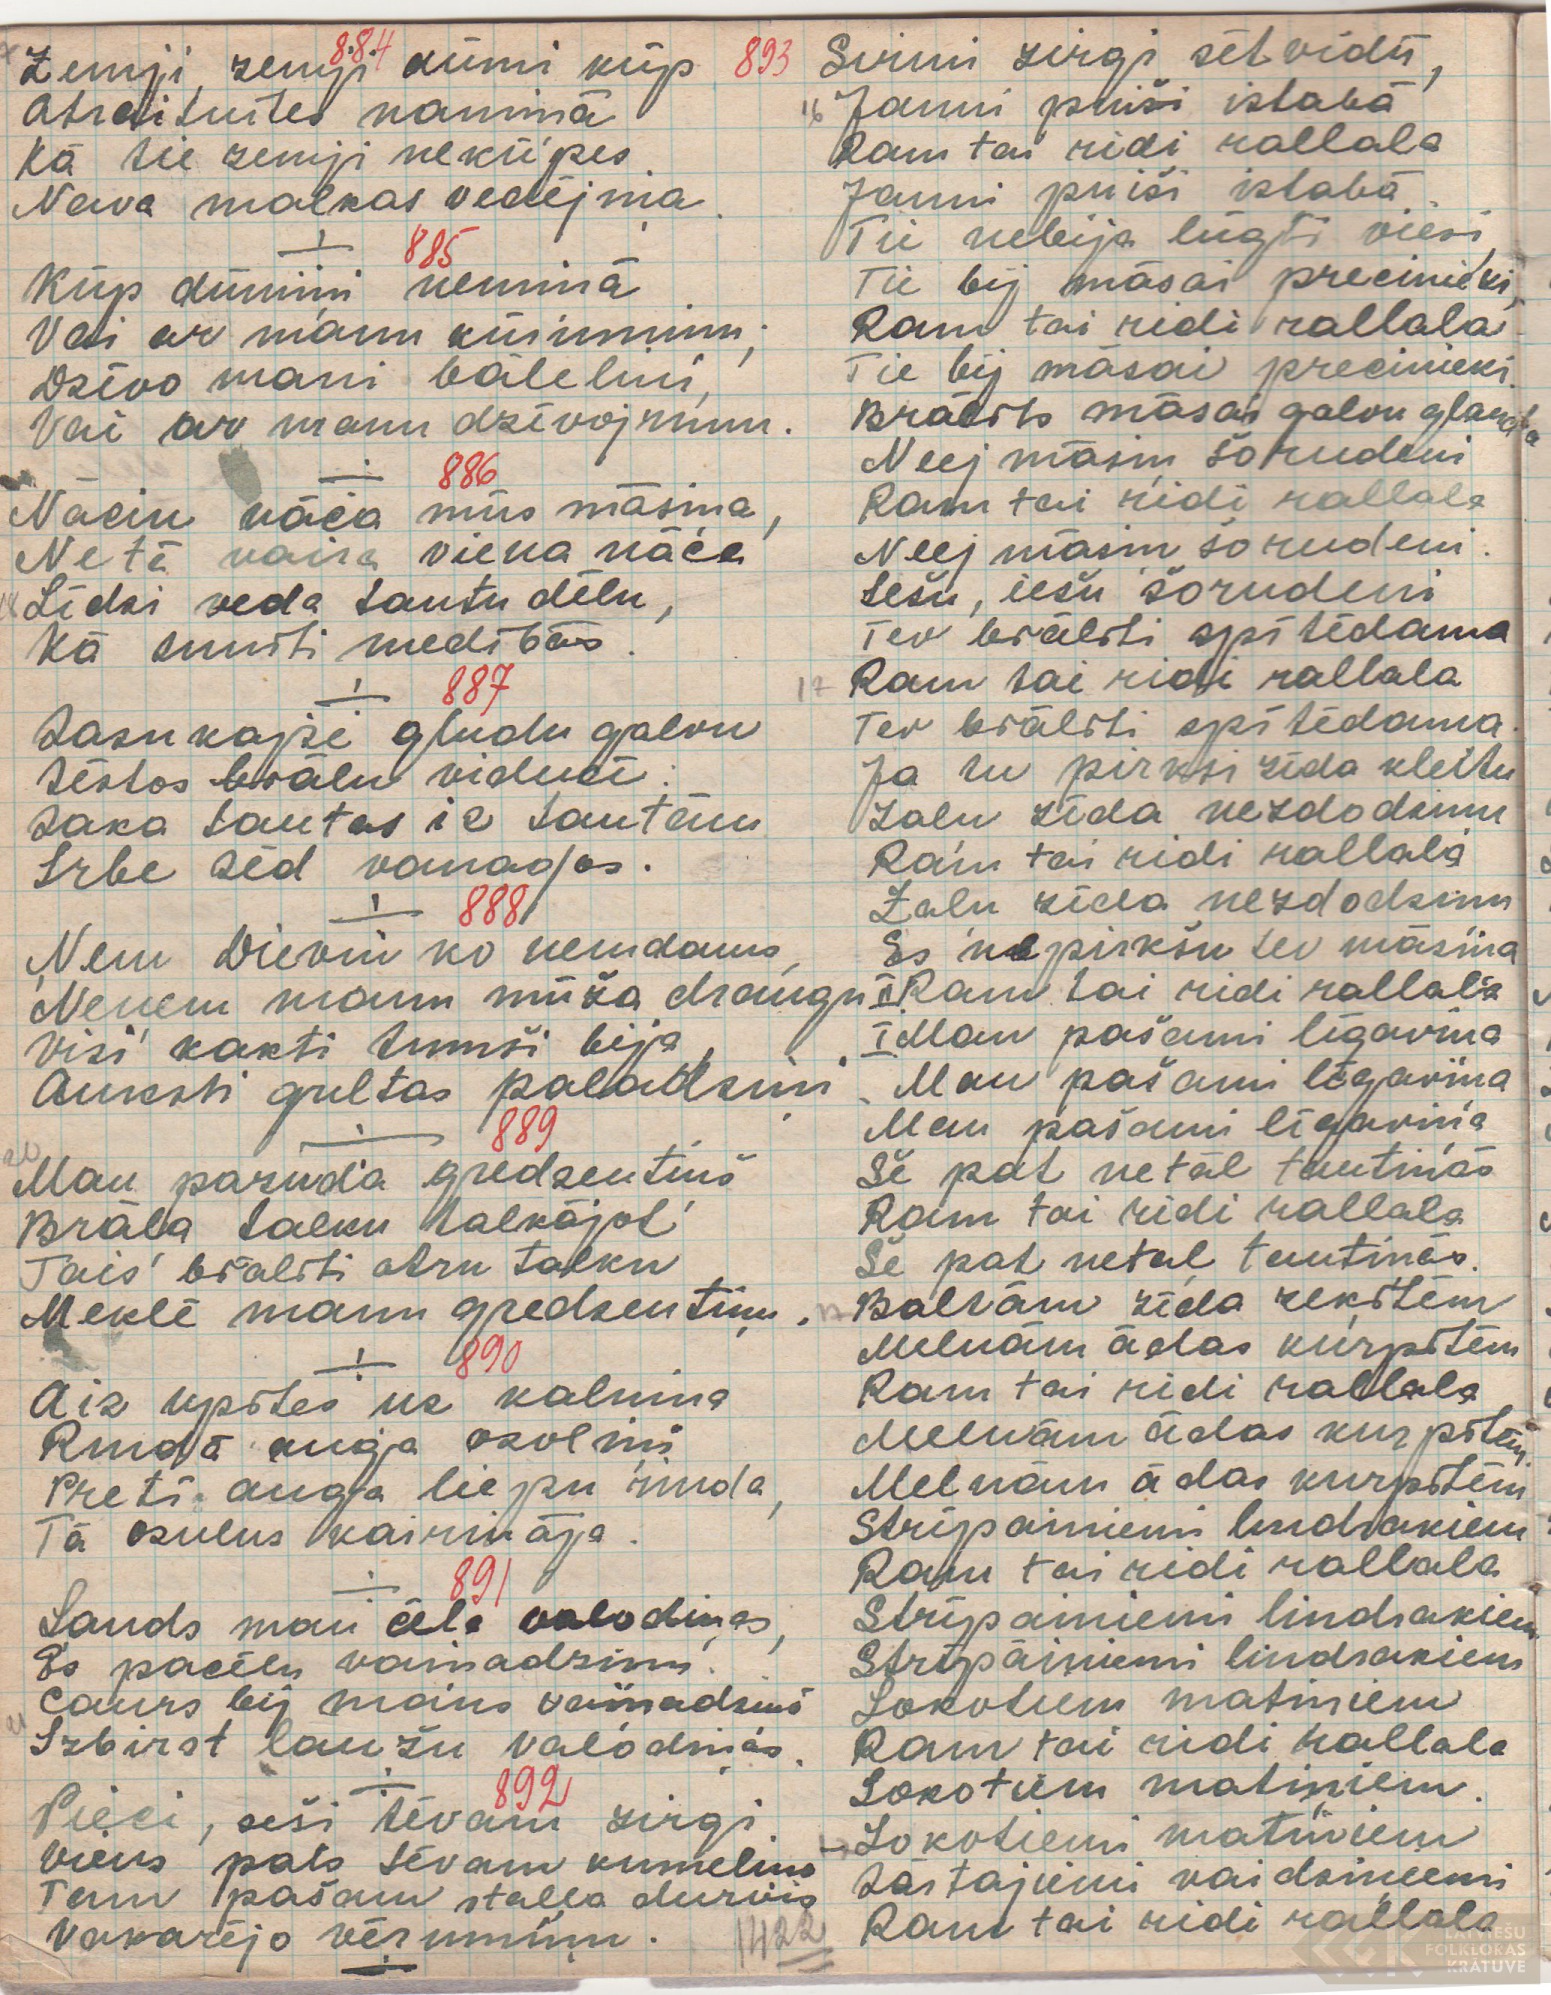 884
Zemji, zemji dūmi kūp
Atraitnītes namiņā
Kā tie zemji nekūpēs
Nava malkas vedējiņa.
885
Kūp dūmiņi neminā
Vai ar manu kūrumiņu;
Dzīvo mani bāleliņi,
Vai ar manu dzīvojumu.
886
Nāciņ nāca mūs māsiņa,
Ne tā vaira viena nāca
Līdzi veda tautu dēlu,
Kā suniti medībās.
887
Sasukajši gludu galvu
Sēstos brāļu viducī.
Saka tautas iz tautām
Irbe sēd vanagos.
888
Ņem Dieviņ ko ņemdams,
Neņem manu mūža draugu
Visi kakti tumši bija,
Auksti gultas paladziņi.
889
Man pazuda gredzentiņš
Brāļa talku talkājot
Tais' brālīti otru talku
Meklē manu gredzentiņu.
890
Aiz upītes uz kalniņa
Rindā auga ozoliņi
Pretī auga liepu rinda,
Tā ozolus kairināja.
891
Ļauds man cēla valodiņas,
Es pacēlu vainadziņu.
Caurs bij mains vainadziņš
Izbirst ļaužu valodiņas.
892
Pieci, seši tēvam zirgi
Viens pats tēvam kumeliņs
Tam pašam staļļa durvis
Vakarējo vērumiņu.
1422
893 Sirmi zirgi sētvidū,
16 Jauni puiši istabā
Ram tai ridi rallala
Jauni puiši istabā
Tie nebija lūgti viesi,
Tie bij māsai precinieki,
Ram tai ridi rallala
Tie bij māsai precinieki.
Brālīts māsai galvu glauda
Neej māsiņ šorudeni
Ram tai ridi rallala
Neej māsiņ šorudeni.
Iešu, iešu šorudeni
Tev brālīti spītēdama
17 Ram tai ridi rallala
Tev brālīti spītēdama.
Ja tu pirksi zīda kleitu
Zaļu zīda nezdodziņu
Ram tai ridi rallala
Zaļu zīda nezdodziņu
Es nepirkšu tev māsiņa
II Ram tai ridi rallala
I Man pašami līgaviņa
Man pašami līgaviņa
Man pašami līgaviņa
Še pat netāl tautiņās
Ram tai ridi rallala
Še pat netāl tautiņās.
Baltām zīda zeķītēm
Melnām ādas kurpītēm
Ram tai ridi rallala
Melnām ādas kurpītēm
Melnām ādas kurpītēm
Strīpainiemi lindrakiem
Ram tai ridi rallala
Strīpainiemi lindrakiem
Strīpainiemi lindrakiem
Lokotiem matiņiem
Ram tai ridi rallala
Lokotiem matiņiem.
Lokotiemi matiņiem
Sārtajiemi vaidziņiemi
Ram tai ridi rallala
LATVIEŠU
FOLKLORAS
KRĀTUVE